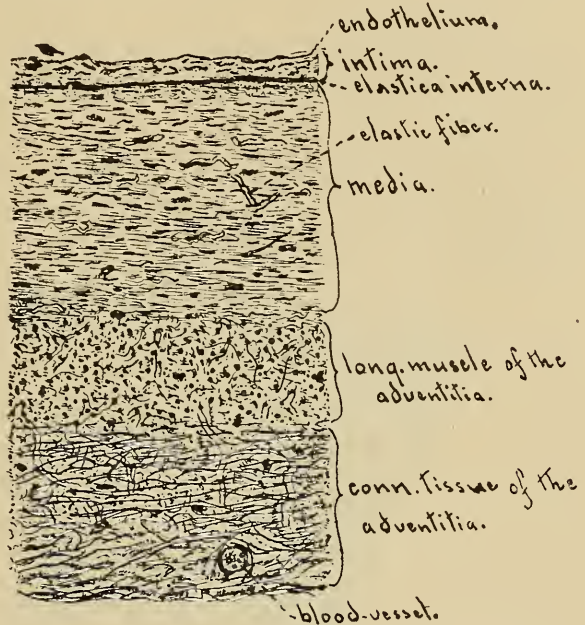 endothelium.
intima.
elastica interna.
elastic fiber.
media.
long. muscle of the
adventitia.
conn. tissue of the
adventitia.
blood-vessel.